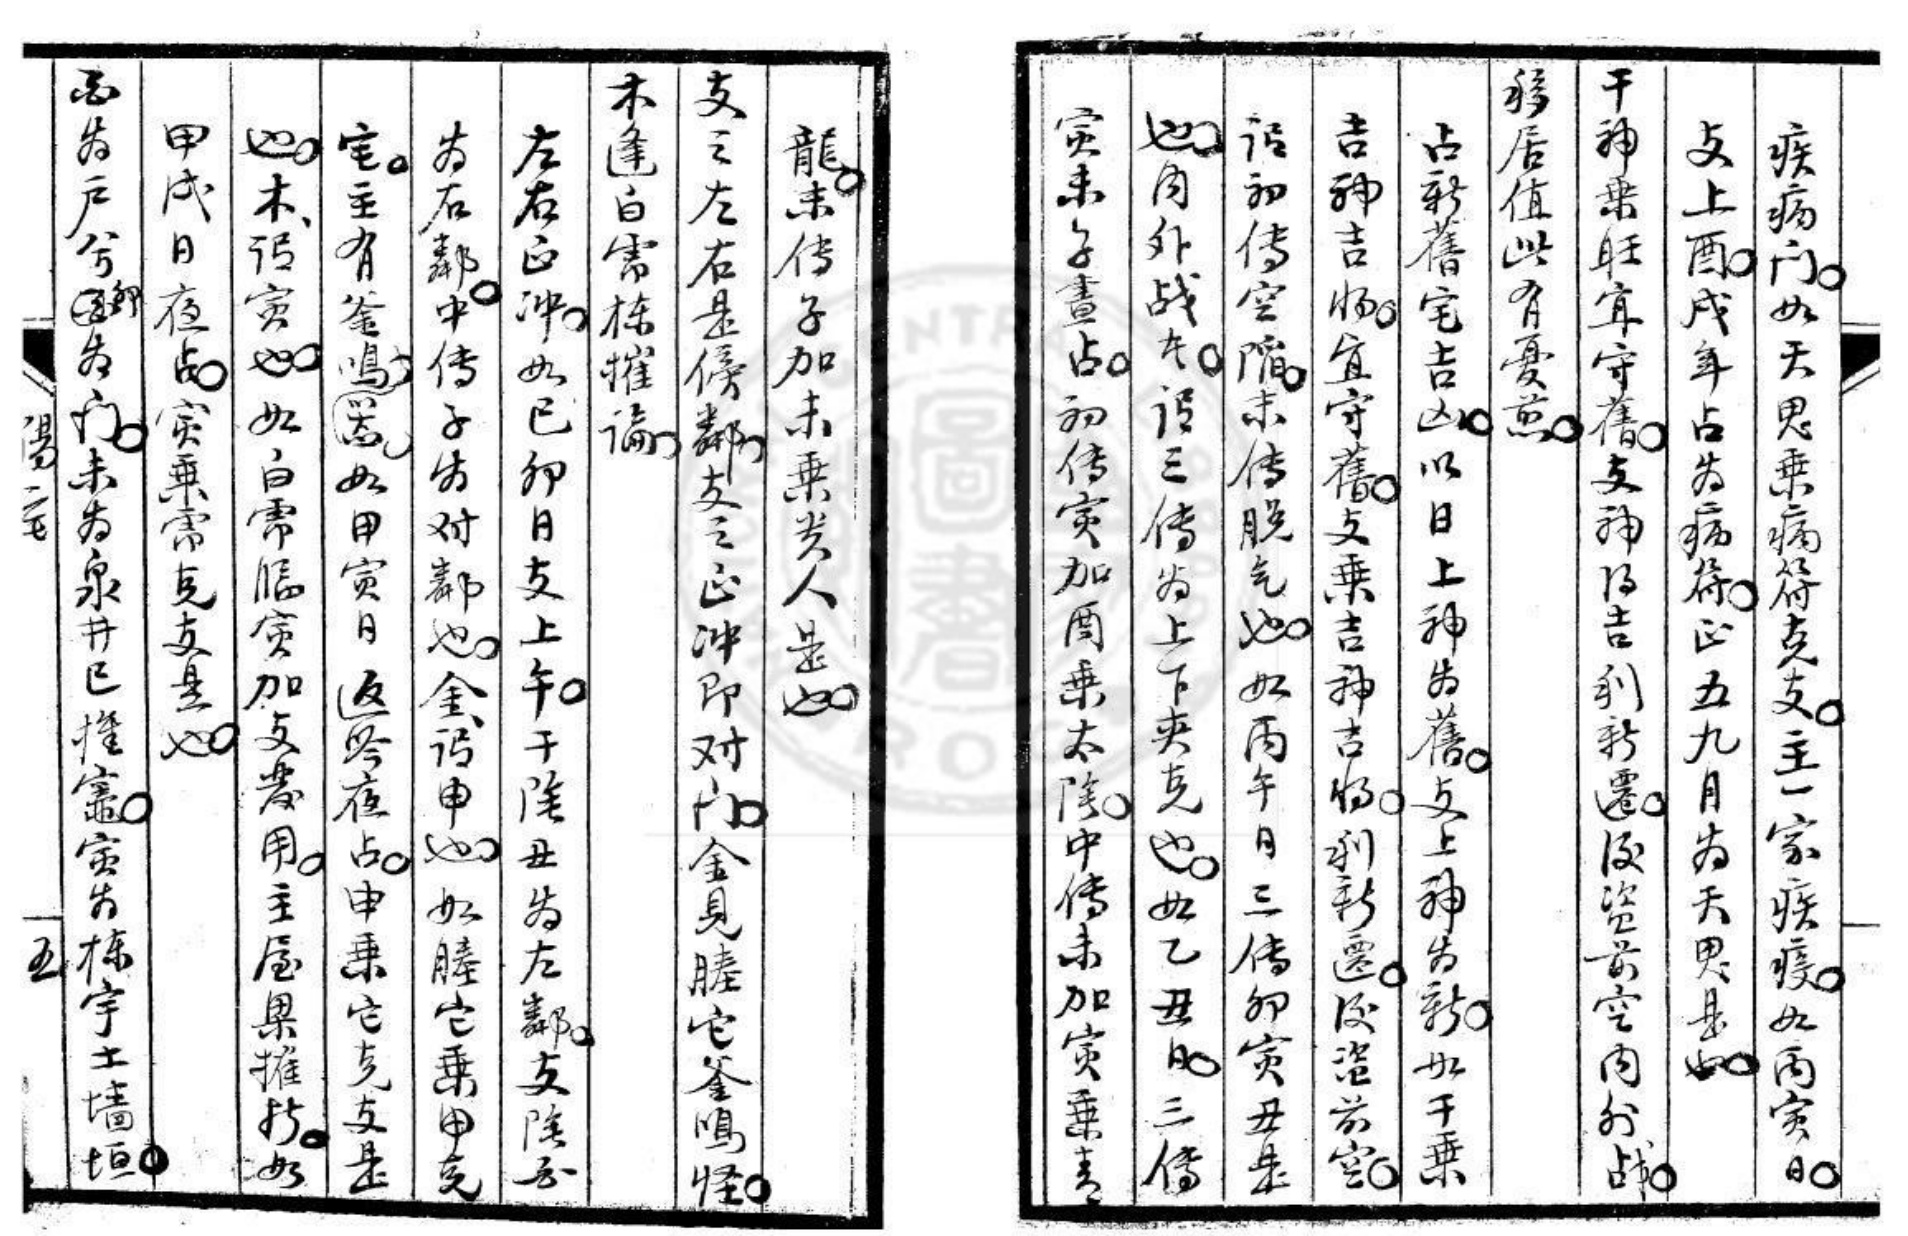 疾病门如天鬼乘病符克支主一家疾疫如丙寅日
支上酉戌年占为病符正五九月为天鬼是也
干神乘旺宜守舊支神得吉利新遷後盜前空内外战
移居值此有憂煎
占新舊宅吉凶以日上神为舊支上神为新如干乘
吉神吉将宜守舊支乘吉神吉将利新遷後盜前空
谓初傳空陷末傳脱气也如丙午日三傳卯寅丑是
也内外战者谓三傳为上下夹克也如乙丑日三傳
寅未子晝占初傳寅加酉乘太陰中傳未加寅乘青
龍末傳子加未乘贵人是也
支之左右是傍鄰支之正冲即对门金見螣它釜鳴怪
木逢白虎棟摧論
左右正冲如己卯日支上午干陰丑为左鄰支陰酉
为右鄰中傳子为对鄰也金谓申也如螣它乘申克
宅主有釜鳴如甲寅日返吟夜占申乘它克支是
也木谓寅也如白虎臨寅加支发用主屋梁摧折如
甲戌日夜占寅乘虎克支是也
酉为户兮卯为门未为泉井巳推竈寅为棟宇土墙垣
陽宅
五